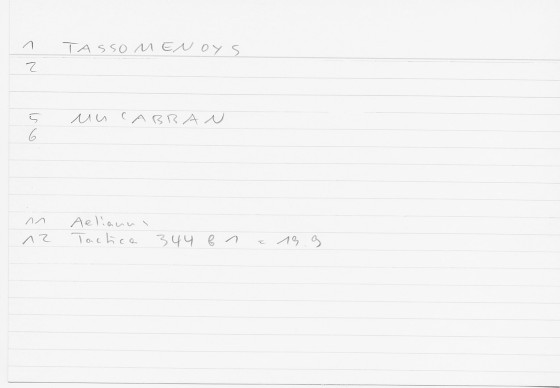 1 TASSOMENOYS
2
5 MUʿARRAN
6
11 Aelianus
12 Tactica 344 B 1 = 19 9